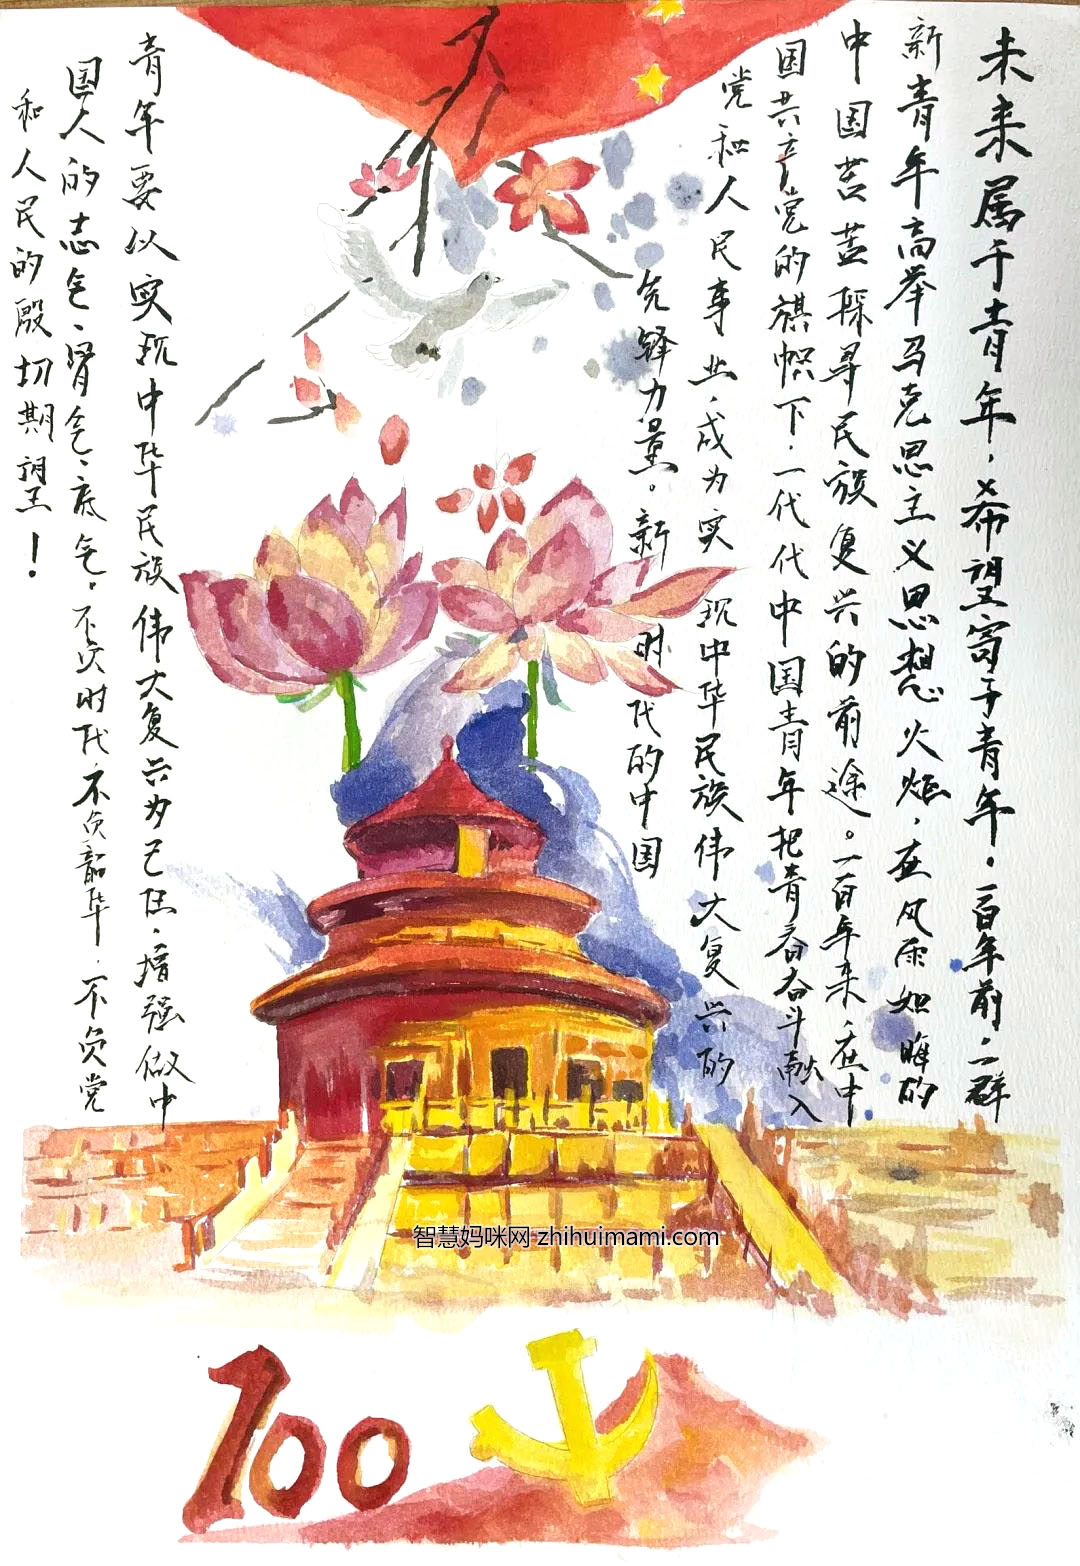 未来属于青年，希望寄予青年。一百年前，一群
新青年高举马克思主义思想火炬，在风雨如晦的
中国苦苦探寻民族复兴的前途。一百年来，在中
国共产党的旗帜下，一代代中国青年把青春奋斗融入
党和人民事业，成为实现中华民族伟大复兴的
先锋力量。新时代的中国
青年要以实现中华民族伟大复兴为己任，增强做中
国人的志气、骨气、底气，不负时代，不负韶华，不负党
和人民的殷切期望！
智慧妈咪网 zhihuimami.com
100